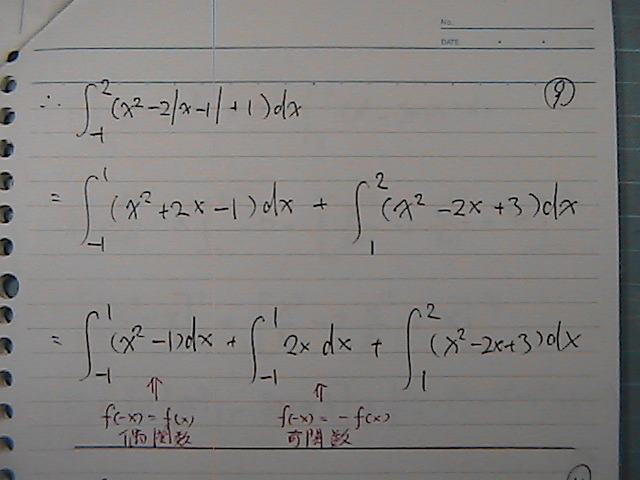 No.
DATE
⑨
∴ ∫_{-1}^{2} (x² - 2|x-1| + 1) dx
= ∫_{-1}^{1} (x² + 2x - 1) dx + ∫_{1}^{2} (x² - 2x + 3) dx
= ∫_{-1}^{1} (x² - 1) dx + ∫_{-1}^{1} 2x dx + ∫_{1}^{2} (x² - 2x + 3) dx
⇑ ⇑
f(-x) = f(x) f(-x) = -f(x)
偶関数 奇関数